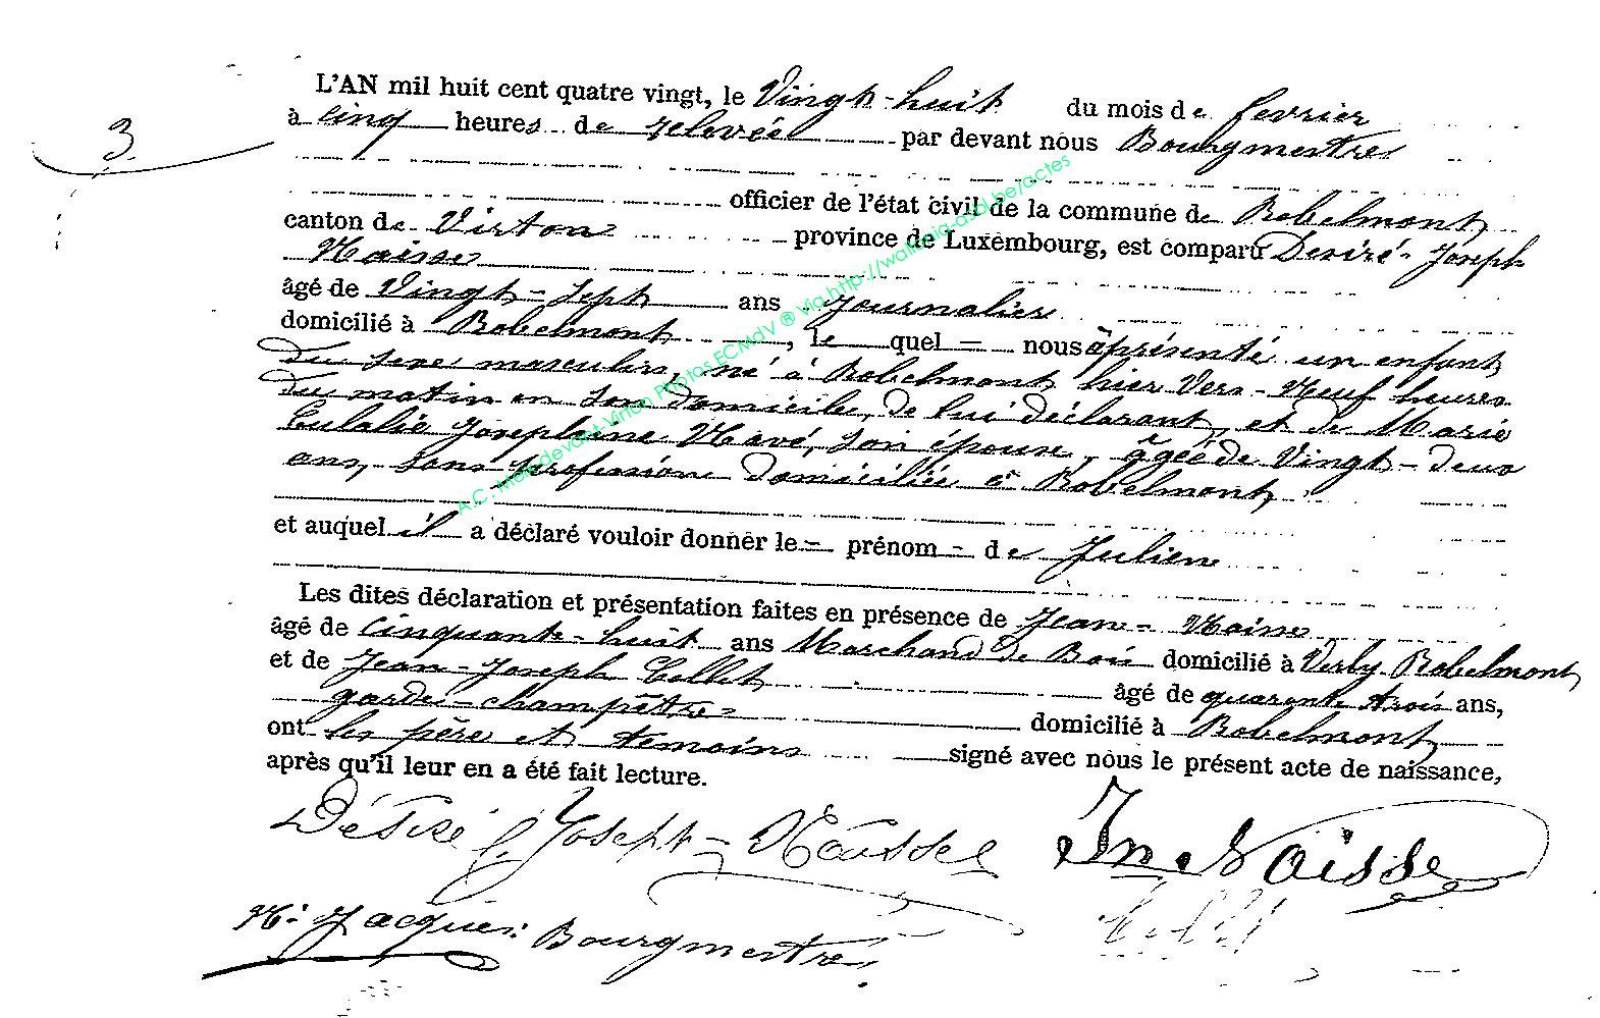 3
L'AN mil huit cent quatre vingt, le Vingt-huit du mois de fevrier
à cinq heures de relevée par devant nous Bourgmestre
officier de l'état civil de la commune de Robelmont
canton de Virton province de Luxembourg, est comparu Desiré-Joseph
Naisse
âgé de Vingt-sept ans journalier
domicilié à Robelmont, le quel = nous a présenté un enfant
du sexe masculin, né à Robelmont hier vers Neuf heures
du matin en son domicile, de lui déclarant, et de Marie
Eulalie Josephine Navé, son épouse, âgée de Vingt-deux
ans, sans profession domiciliée à Robelmont,
et auquel il a déclaré vouloir donner le - prénom - de Julien
Les dites déclaration et présentation faites en présence de Jean - Naisse
âgé de cinquante-huit ans Marchand de Bois domicilié à Robelmont
et de Jean-Joseph Collet âgé de quarente trois ans,
garde-champêtre domicilié à Robelmont
ont les père et temoins signé avec nous le présent acte de naissance,
après qu'il leur en a été fait lecture.
Désiré Joseph-Naisse Jn Naisse
Collet
N. Jacques Bourgmestre
A.C. Meix-devant-Virton Photos ECMdV ® Via http://wallonia-asbl.be/actes